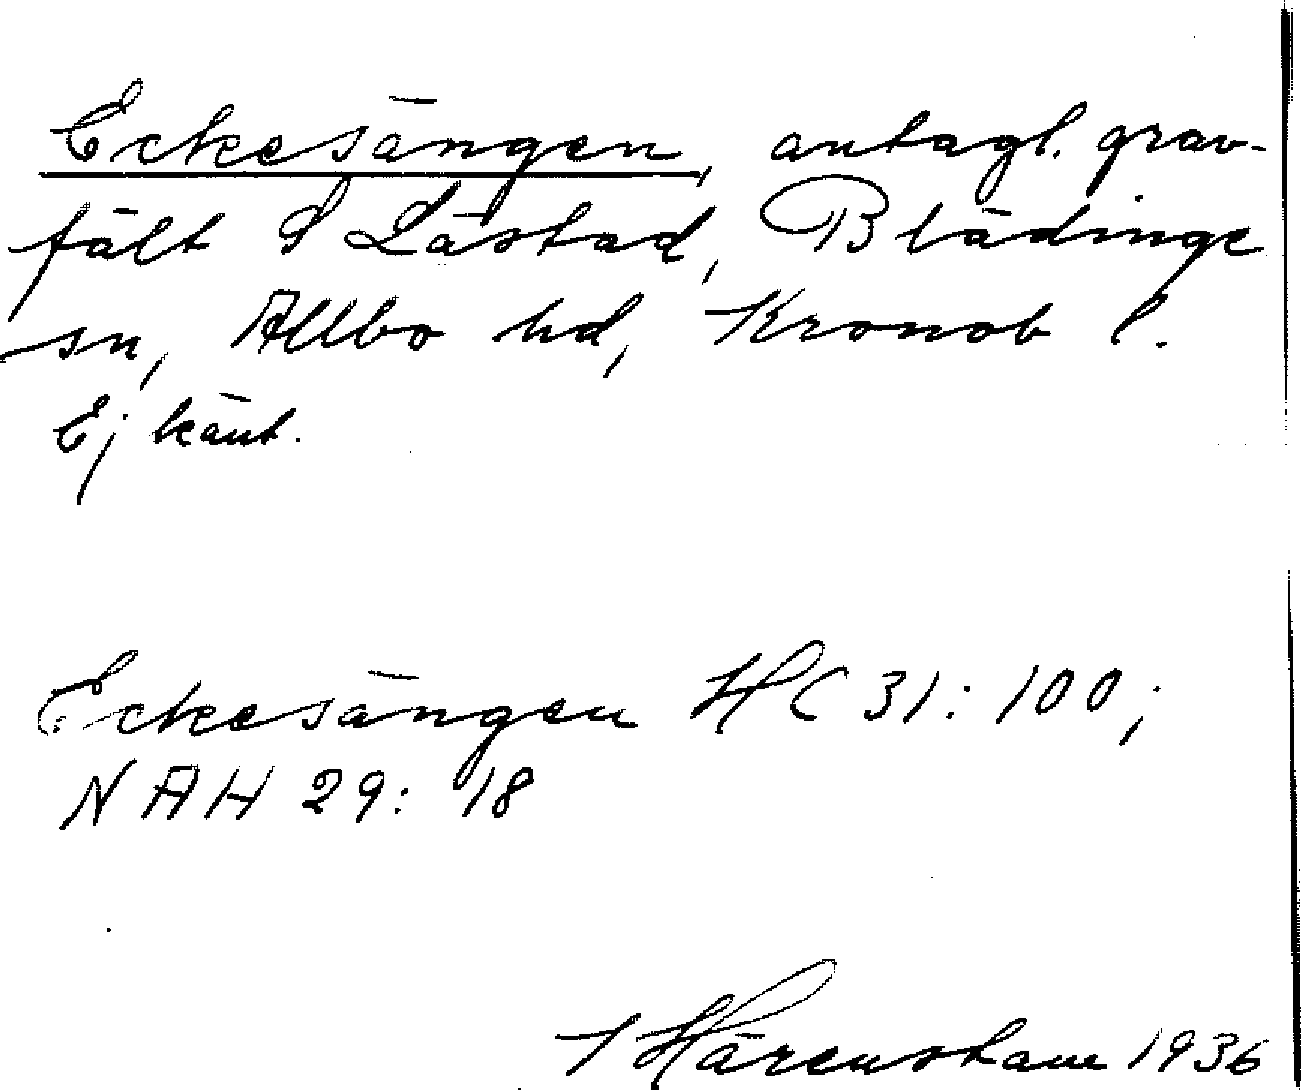 Eckesängen, antagl. grav-
fält S Låstad, Blädinge
sn, Allbo hd, Kronob l.
Ej känt.
Eckesängen HC 31: 100;
NAH 29: 18
I Härenstam 1936